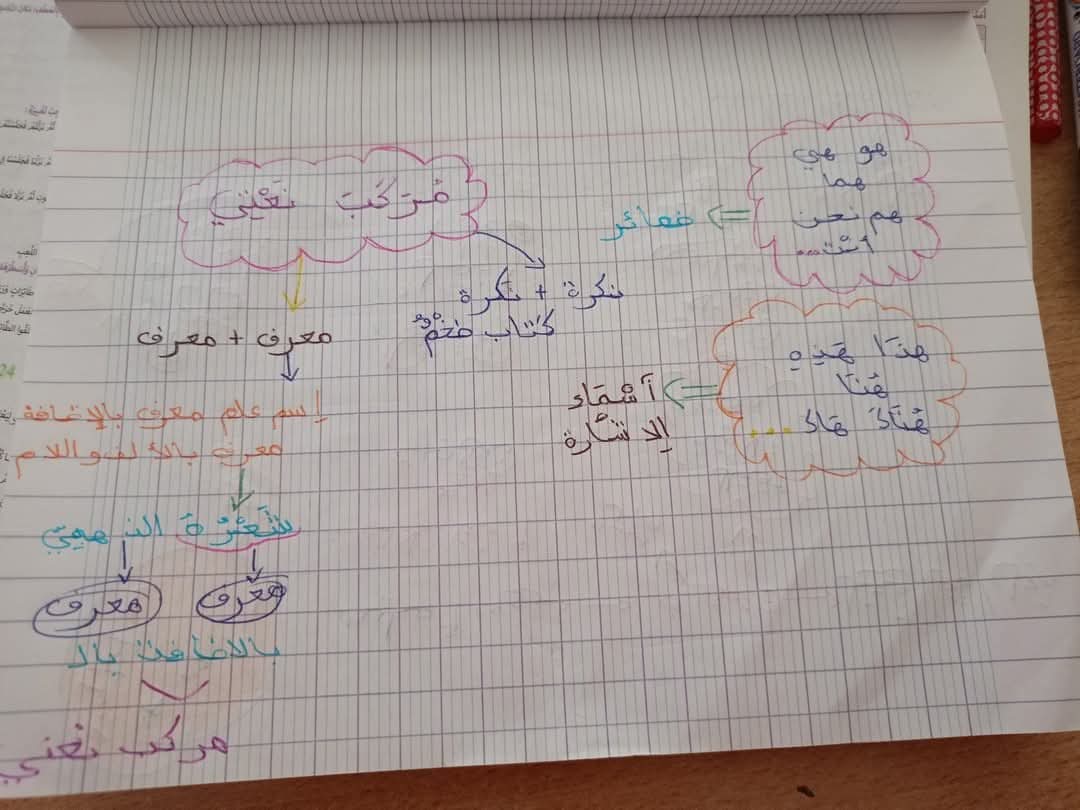 مُرَكَّبَ نَعْتِي
نكرة + نكرة
كتاب ضخم
معرف + معرف
إسم علم معرف بالإضافة
معرف بالألف واللام
شَعْرُهَ الذهبِيّ
معرف معرف
بالاضافة بال
مركب نعتي
هو هي
هما
هم نحن
أنت...
ضمائر
هذا هذِهِ
هُنَا
هُنَاكَ هَاك ...
أسْمَاء
الاشارة